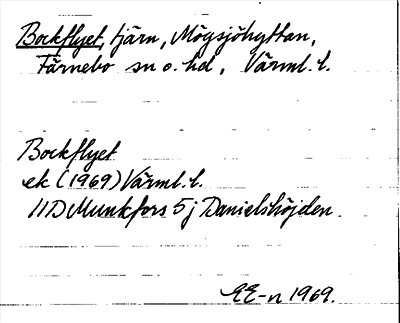 Bockflyet, tjärn, Mögsjöhyttan,
Färnebo sn o. hd, Värml. l.
Bockflyet
ek (1969) Värml. l.
11D Munkfors 5 j Danielshöjden
EE-n 1969.